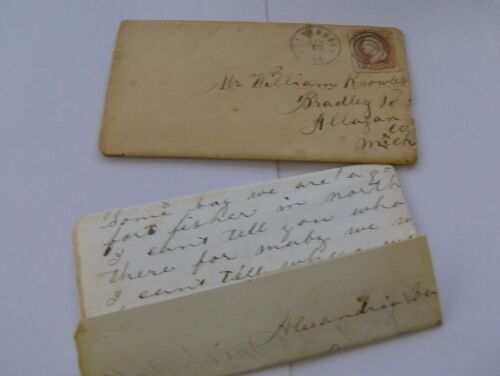 Mr William Knowles
Bradley Po
Allegan
Co
Mich
Some say we are a go
fort fisher in north
I cant tell you wha
there for maby we w
I cant tell
Alexandria